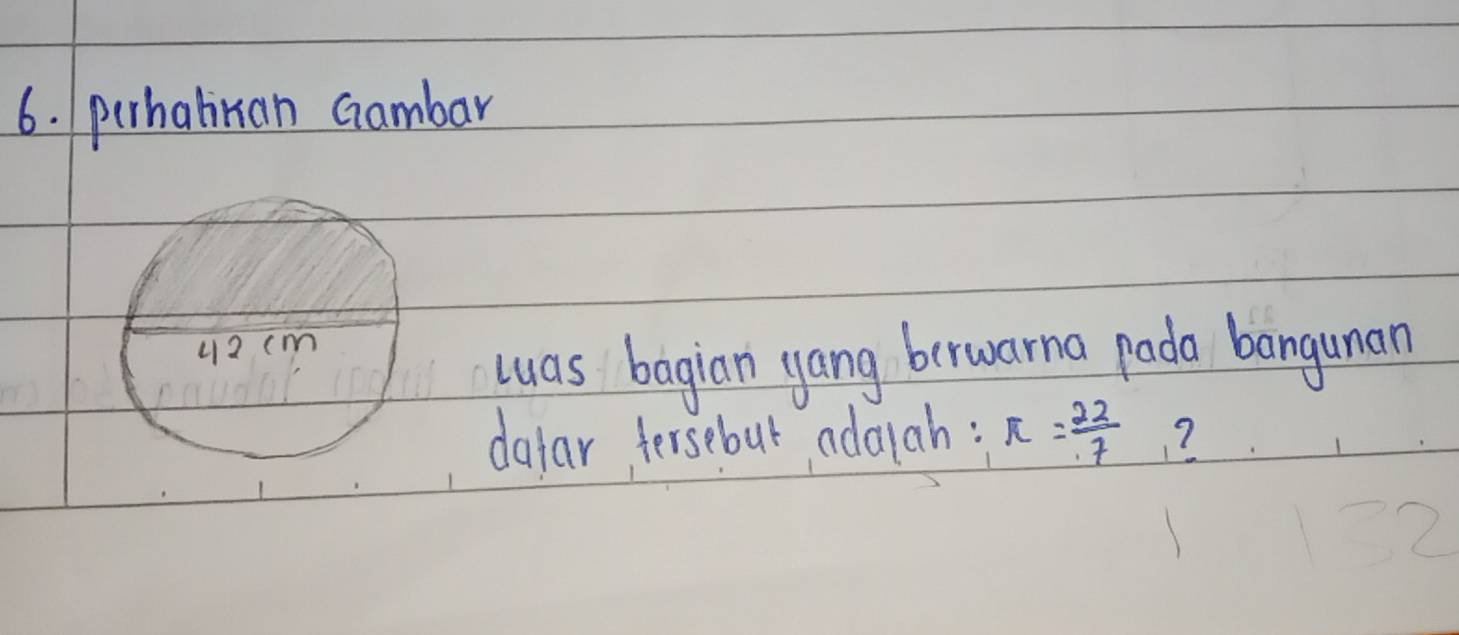 6. perhatikan Gambar
42 cm
Luas bagian yang berwarna pada bangunan
datar tersebut adalah : π = 22/7 ?
132